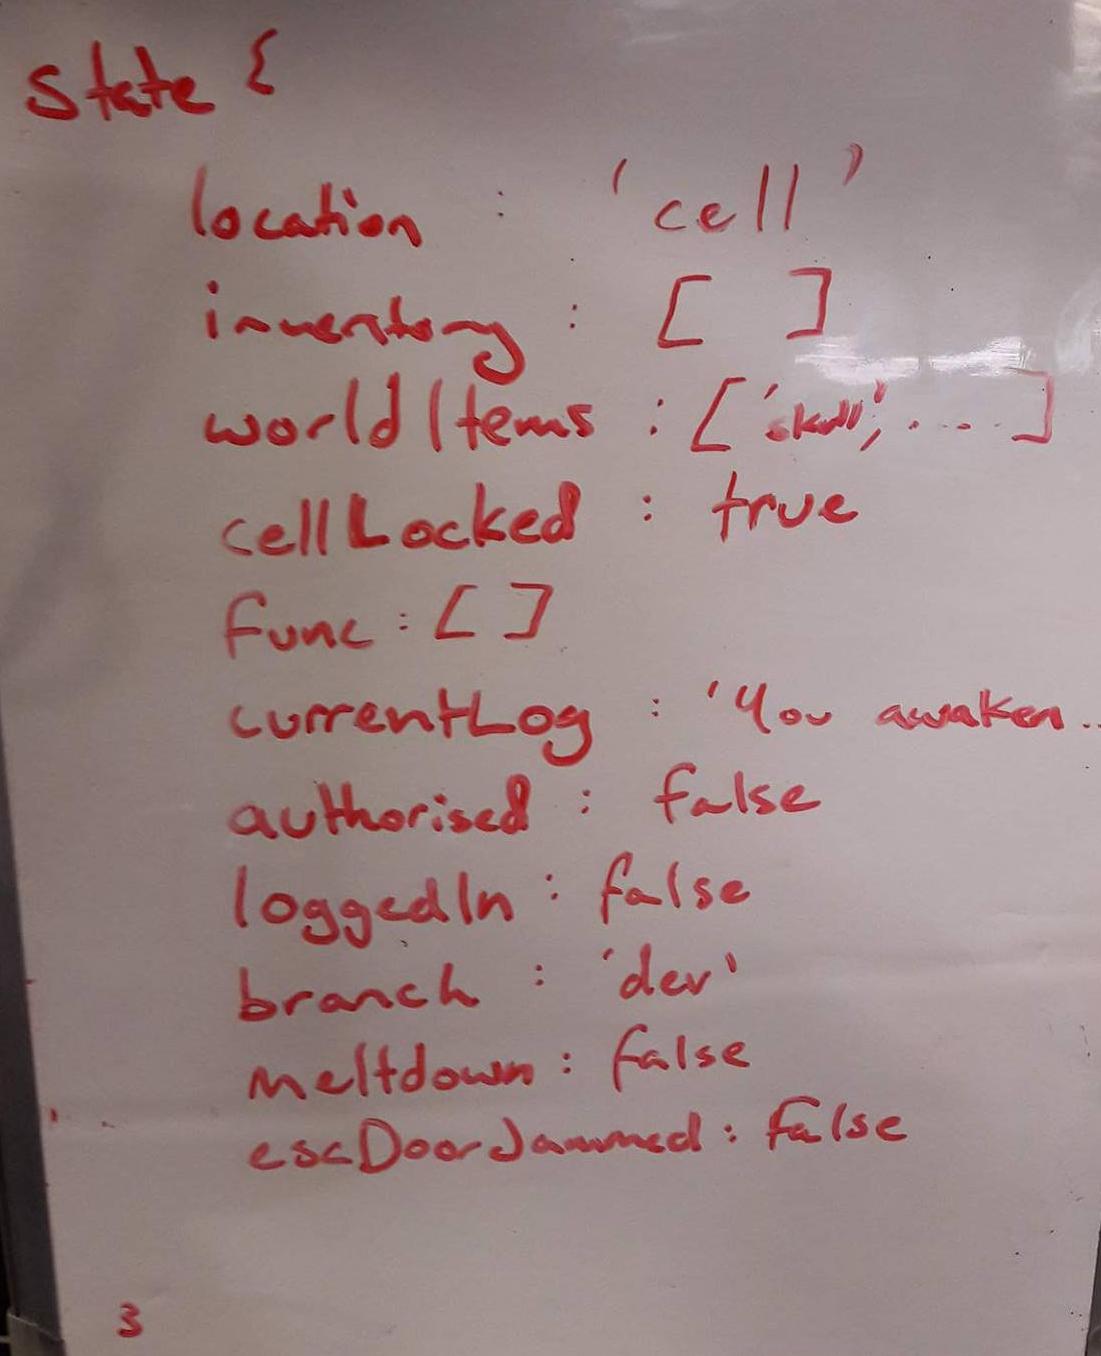 state {
location : 'cell'
inventory : [ ]
worldItems : ['skull', .... ]
cellLocked : true
func : [ ]
currentLog : 'You awaken..
authorised : false
loggedIn : false
branch : 'dev'
meltdown : false
escDoorJammed : false
}